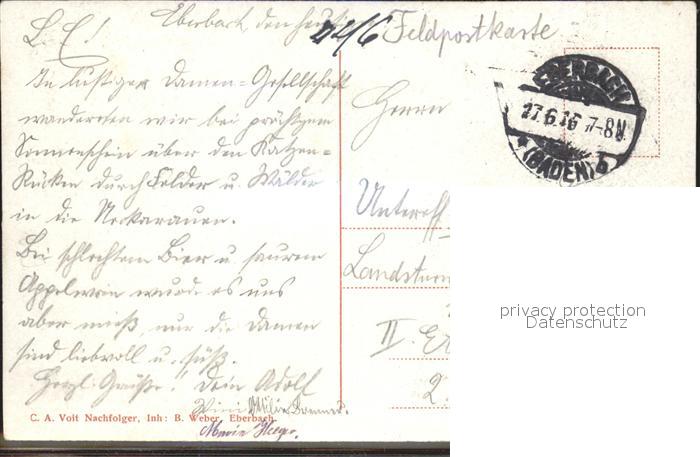 Eberbach, den heut.
24/6
Feldpostkarte
L. E!
In lustiger Damen-Gesellschaft
wanderten wir bei prächtigem
Sonnenschein über den Katzen-
Rücken durch Felder u. Wälder
in die Neckarauen.
Bei schlechtem Bier u. saurem
Appelwein wurde es uns
aber mieß, nur die Damen
sind liebvoll u. süß.
Herzl. Grüße! Dein Adolf
Marie
C. A. Voit Nachfolger, Inh: B. Weber, Eberbach
EBERBACH
27.6.16 7-8N.
* (BADEN) b
Herrn
Unteroff
Landsturm
II. Er
2.
privacy protection
Datenschutz